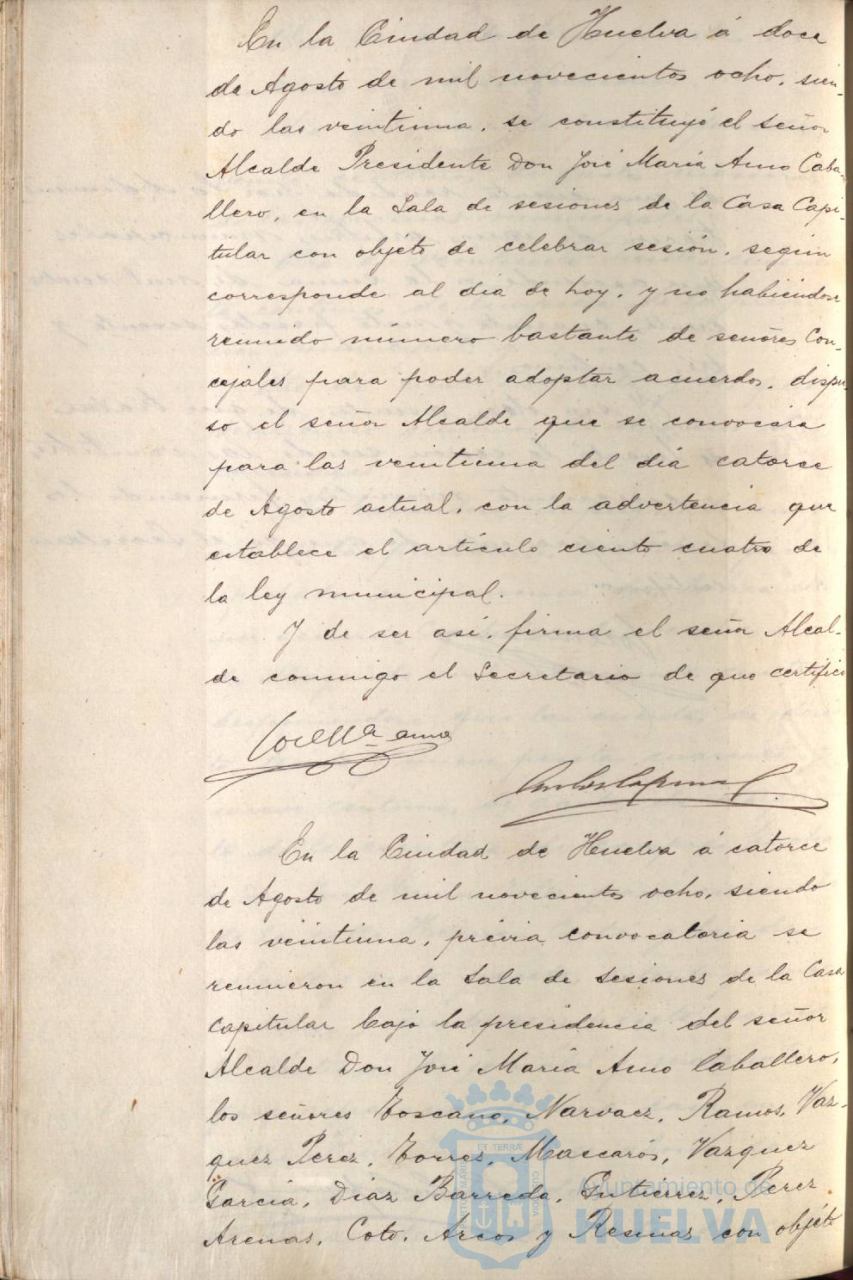 En la Ciudad de Huelva á doce
de Agosto de mil novecientos ocho, sien-
do las veintiuna, se constituyó el señor
Alcalde Presidente Don José María Amo Caba-
llero, en la Sala de sesiones de la Casa Capi-
tular con objéto de celebrar sesión, según
corresponde al dia de hoy, y no habiéndose
reunido número bastante de señores Con-
cejales para poder adoptar acuerdos, dispu-
so el señor Alcalde que se convocára
para las veintiuna del dia catorce
de Agosto actual, con la advertencia que
establece el artículo ciento cuatro de
la ley municipal.
Y de ser así, firma el señor Alcal-
de conmigo el Secretario de que certifico
José Mª Amo
En la Ciudad de Huelva á catorce
de Agosto de mil novecientos ocho, siendo
las veintiuna, prévia convocatoria se
reunieron en la Sala de Sesiones de la Casa
Capitular bajo la presidencia del señor
Alcalde Don José María Amo Caballero,
los señores Toscano, Narvaez, Ramos, Vaz-
quez Perez, Torres, Mascarós, Vazquez
García, Diaz Barreda, Gutierrez, Perez
Arenas, Coto, Arcos y Resinas con objéto
Ayuntamiento de
HUELVA